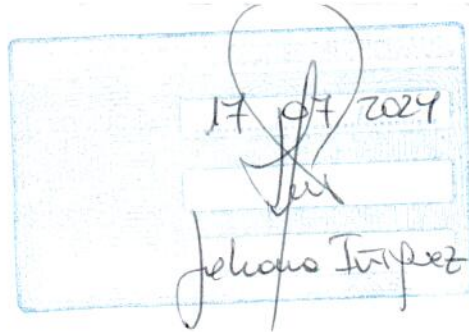 17 07 2024
Johana Iñiguez